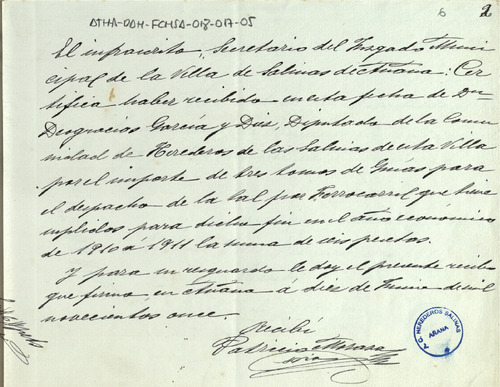 ATHA-DDH-FCMSA-018-017-05
6 2
El infrascrito, Secretario del Juzgado Muni-
cipal de la Villa de Salinas de Añana: Cer-
tifica haber recibido en esta fecha de Dn
Deogracias García y Diz, Diputado de la Comu-
nidad de Herederos de las Salinas de esta Villa
por el importe de tres tomos de Guías para
el despacho de la sal por Ferrocarril que tiene
implidos para dicho fin en el año económico
de 1910 á 1911 la suma de seis pesetas.
Y para su resguardo le doy el presente recibo
que firmo, en Añana á diez de Junio de mil
novecientos once.
Recibí
Patricio
A.C. HEREDEROS SALINAS
AÑANA